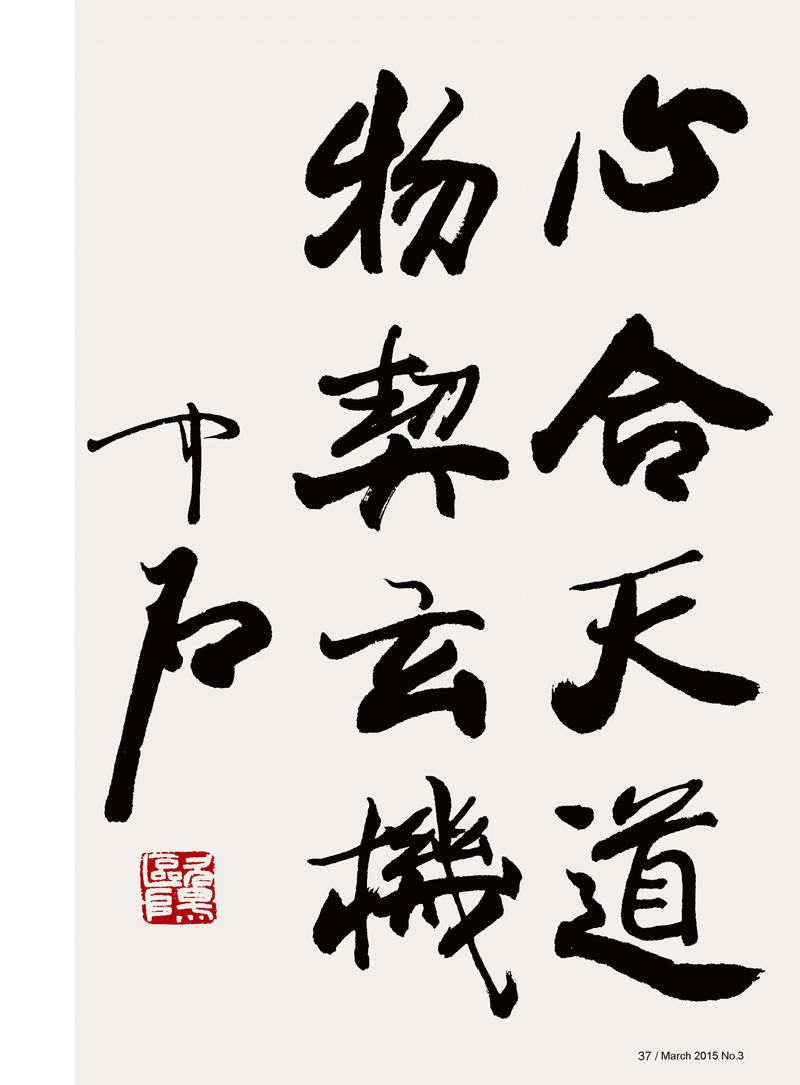 心合天道
物契玄機
中石
37 / March 2015 No.3